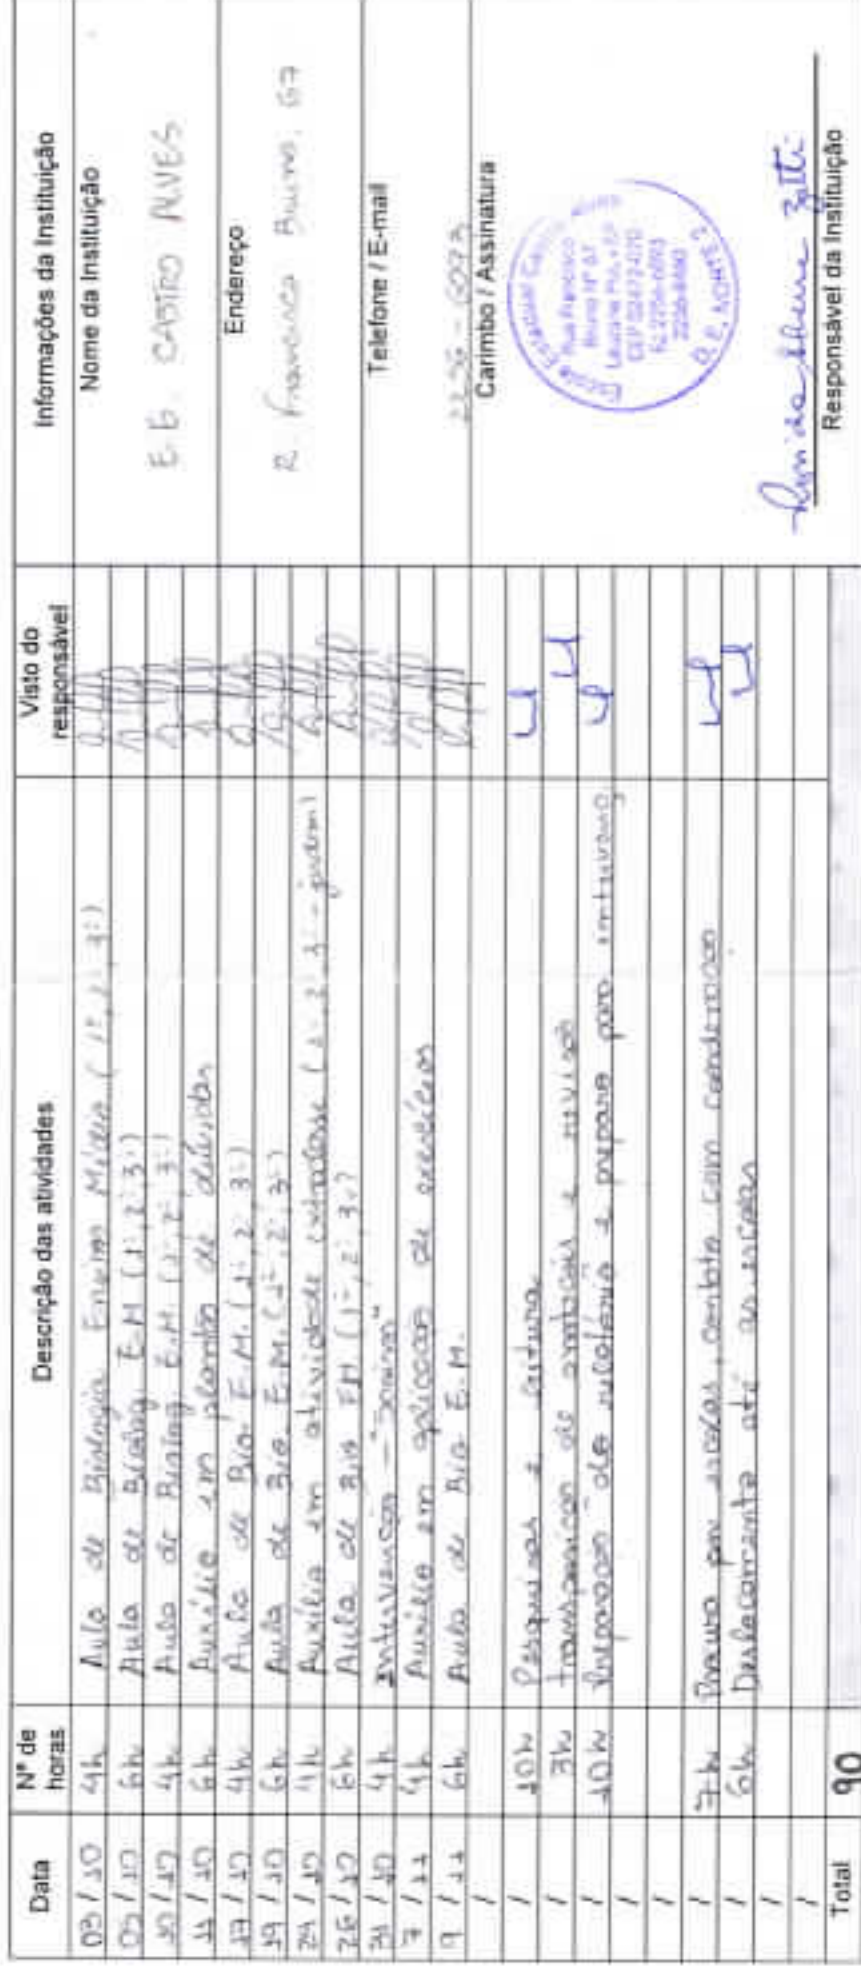 Data Nº de horas Descrição das atividades Visto do responsável Informações da Instituição
03 / 10 4h Aula de Biologia Ensino Médio (1º, 2º, 3º)
05 / 10 6h Aula de Biolog. E.M (1º, 2º, 3º)
10 / 10 4h Aula de Biolog. E.M. (1º, 2º, 3º)
11 / 10 6h Auxílio em plantão de dúvidas
17 / 10 4h Aula de Bio. E.M. (1º, 2º, 3º)
19 / 10 6h Aula de Bio. E.M. (1º, 2º, 3º)
24 / 10 4h Auxílio em atividade extraclasse (1º, 2º, 3º -
26 / 10 6h Aula de Bio EM (1º, 2º, 3º)
31 / 10 4h Intervenção -
7 / 11 4h Auxílio em aplicação de exercícios
9 / 11 6h Aula de Bio E.M.
/
/ 10h Pesquisas e leitura
/ 3h transposição de
/ 10h Preparação do relatório e preparo para
/
/
/ 7h Procura por escolas, contato com coordenação
/ 6h Deslocamento até as escolas
/
/
Total 90
Nome da Instituição
E.E. CASTRO ALVES
Endereço
R. Francisco Bruno, 67
Telefone / E-mail
2256-6073
Carimbo / Assinatura
Escola Estadual Castro Alves
Rua Francisco
Bruno Nº 67
CEP 02472-070
D.E. NORTE 2
Zatti
Responsável da Instituição